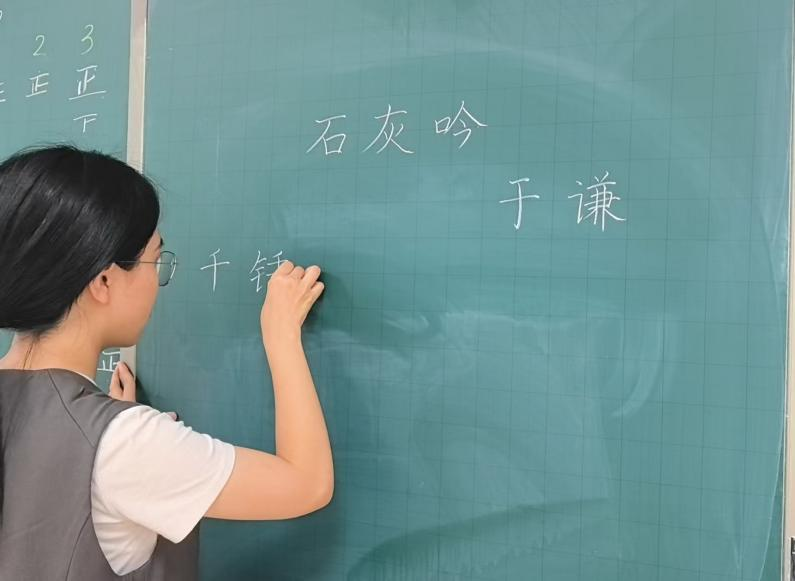 2 3
正 正
下
石灰吟
于谦
千
正